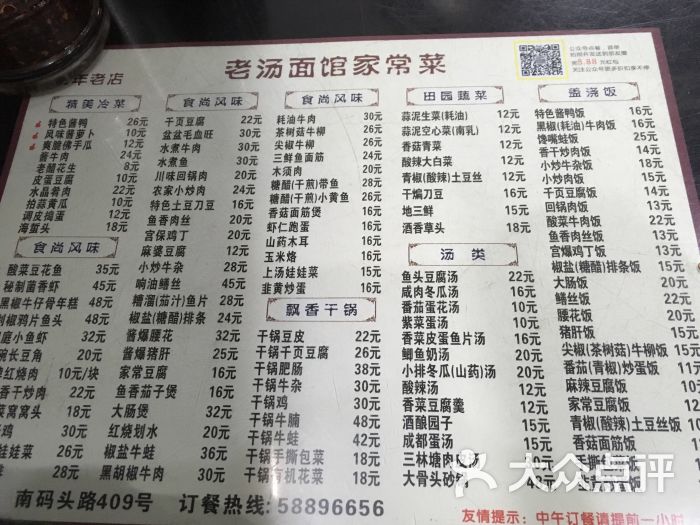 老汤面馆家常菜
年老店
精美冷菜
特色酱鸭 26元
风味酱萝卜 10元
爽脆佛手瓜 12元
酱牛肉 24元
老醋花生 8元
皮蛋豆腐 10元
水晶肴肉 24元
拍蒜黄瓜 10元
调皮捣蛋 12元
海蜇头 18元
食尚风味
酸菜豆花鱼 35元
秘制菌香虾 45元
黑椒牛仔骨年糕 48元
剁椒鸦片鱼头 48元
小鱼虾 32元
豇长豆角 20元
红烧肉 10元/块
香干炒肉 22元
菜窝窝头 18元
鸡 30元
娃娃菜 36元
排 58元
食尚风味
千页豆腐 22元
盆盆毛血旺 30元
水煮牛肉 30元
水煮鱼 30元
川味回锅肉 20元
农家小炒肉 24元
特色土豆刀豆 16元
鱼香肉丝 20元
宫保鸡丁 20元
麻婆豆腐 12元
小炒牛杂 28元
响油鳝丝 45元
糟溜(茄汁)鱼片 28元
椒盐(糖醋)排条 24元
酱爆腰花 32元
酱爆猪肝 25元
家常豆腐 16元
鱼香茄子煲 16元
大肠煲 32元
红烧划水 20元
椒盐牛蛙 36元
黑胡椒牛肉 30元
食尚风味
耗油牛肉 30元
茶树菇牛柳 30元
尖椒牛柳 30元
三鲜鱼面筋 24元
木须肉 20元
糖醋(干煎)带鱼 28元
糖醋(干煎)小黄鱼 26元
香菇面筋煲 16元
虾仁跑蛋 30元
山药木耳 16元
玉米烙 16元
上汤娃娃菜 15元
韭黄炒蛋 16元
飘香干锅
干锅豆皮 22元
干锅千页豆腐 30元
干锅肥肠 38元
干锅牛杂 30元
干锅鸡 30元
干锅牛腩 48元
干锅牛蛙 42元
干锅手撕包菜 18元
干锅有机花菜 18元
田园蔬菜
蒜泥生菜(耗油) 12元
蒜泥空心菜(南乳) 12元
香菇青菜 12元
酸辣大白菜 12元
青椒(酸辣)土豆丝 12元
干煸刀豆 16元
地三鲜 15元
酒香草头 18元
汤类
鱼头豆腐汤 22元
咸肉冬瓜汤 16元
番茄蛋花汤 10元
紫菜蛋汤 10元
香菜皮蛋鱼片汤 20元
鲫鱼奶汤 20元
小排冬瓜(山药)汤 20元
酸辣汤 12元
香菜豆腐羹 12元
酒酿园子 15元
成都蛋汤 15元
三林塘肉
大骨头砂
盖浇饭
特色酱鸭饭 16元
黑椒(耗油)牛肉饭 16元
馋嘴蛙饭
香干炒肉饭 14元
小炒牛杂饭 18元
小炒肉饭
千页豆腐饭
回锅肉饭
酸菜牛肉饭
鱼香肉丝饭
宫爆鸡丁饭
椒盐(糖醋)排条饭
大肠饭
鳝丝饭
腰花饭
猪肝饭
尖椒(茶树菇)牛柳饭 15元
番茄(青椒)炒蛋饭
麻辣豆腐饭
家常豆腐饭
青椒(酸辣)土豆丝饭 10元
香菇面筋饭
南码头路409号 订餐热线: 58896656
友情提示: 中午订餐请提前一小时
大众点评